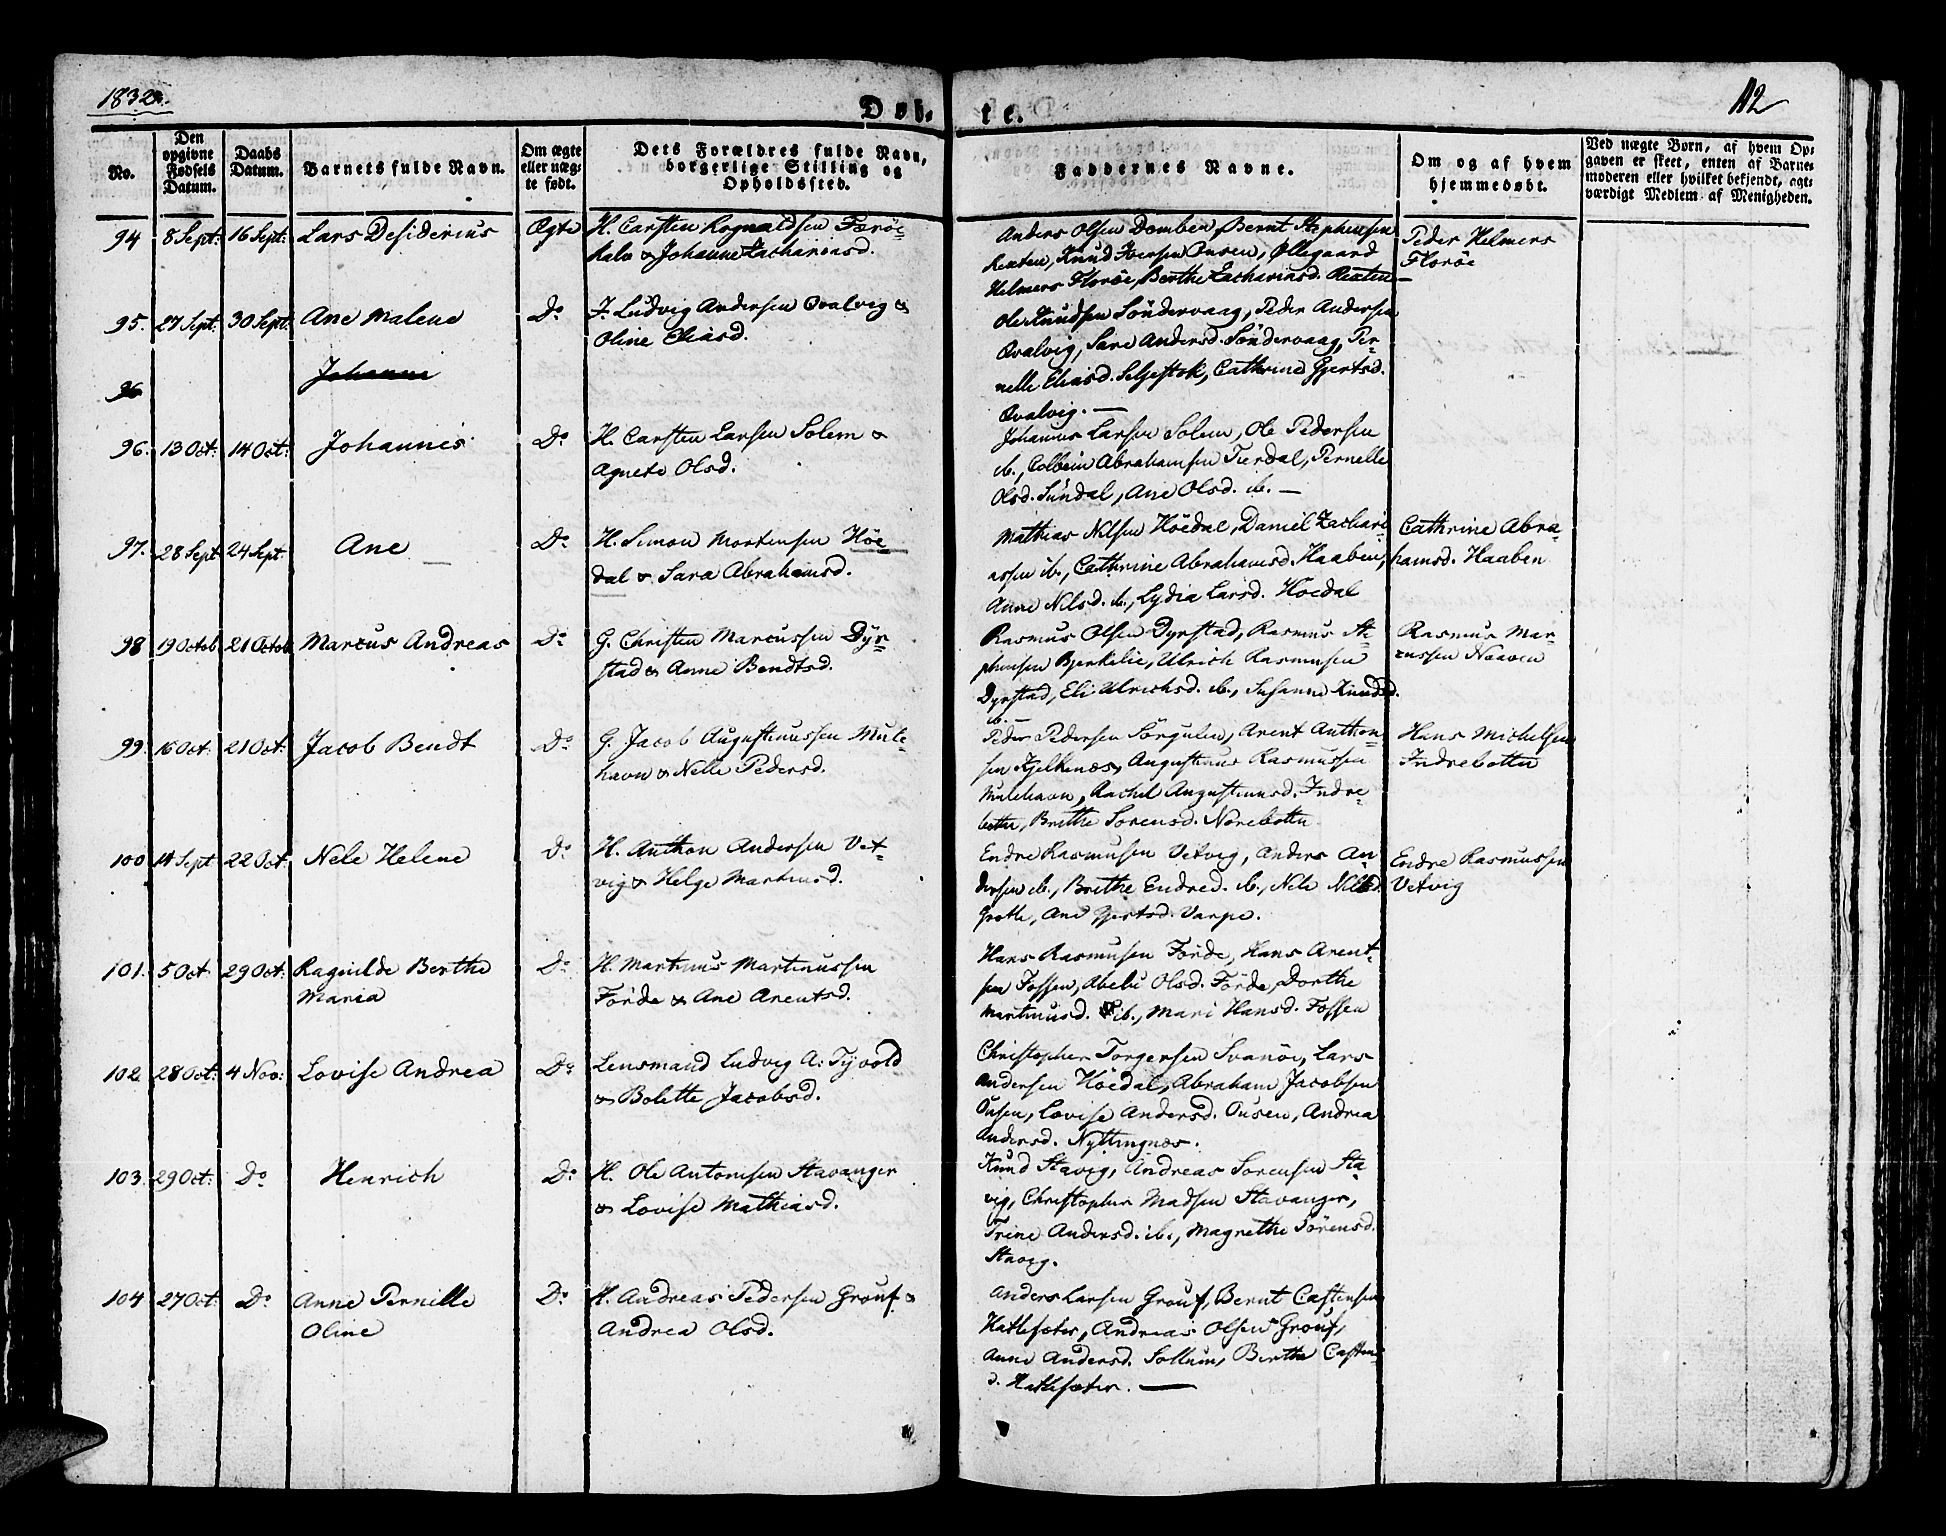 1832.
112
Døb- te.
No.
Den opgivne Fødsels Datum.
Daabs Datum.
Barnets fulde Navn.
Om ægte eller uægte født.
Dets Forældres fulde Navn, borgerlige Stilling og Opholdssted.
Faddernes Navne.
Om og af hvem hjemmedøbt.
Ved uægte Børn, af hvem Opgaven er skeet, enten af Barnemoderen eller hvilket bekjendt, agtværdigt Medlem af Menigheden.
94 8 Sept: 16 Sept: Lars Desiderius Ægte H. Carsten Rognaldsen Færöe-
halv & Johanne Zachariasd.
Anders Olsen Domben, Bernt Stephensen
Rexten, Knud Iversen Ousen, Øllegaard
Helmers Floröe, Berthe Zachariasd. Rexten
Peder Helmers
Floröe
95. 27 Sept: 30 Sept: Ane Malene Do I. Ludvig Andersen Qvalvig &
Oline Eliasd.
Ole Knudsen Söndervaag, Peder Andersen
Qvalvig, Sare Andersd. Söndervaag, Per-
nelle Eliasd. Seljestok, Cathrine Gjertsd.
Qvalvig. —
96 Johanne
96. 13 Oct: 14 Oct: Johannes Do H. Carsten Larsen Solem &
Agnete Olsd.
Johannes Larsen Solem, Ole Pedersen
ib., Colbein Abrahamsen Tierdal, Pernelle
Olsd. Sundal, Ane Olsd. ib. —
97. 28 Sept 24 Sept: Ane Do H. Simon Mortensen Höe-
dal & Sara Abrahamsd.
Mathias Nilsen Höedal, Daniel Zachari-
assen ib., Cathrine Abrahamsd. Haaben,
Anne Nilsd. ib., Lydia Larsd. Höedal
Cathrine Abra-
hamsd. Haaben
98 19 Octob 21 Octob Marcus Andreas Do G. Christen Marcussen Dyr-
stad & Anne Bendtsd.
Rasmus Olsen Dyrstad, Rasmus Ste-
phensen Bjerkelie, Ulrich Rasmussen
Dyrstad, Eli Ulrichsd. ib., Susanne Knudsd.
ib. —
Rasmus Mar-
cussen Naaven
99. 16 Oct: 21 Oct: Jacob Bendt Do G. Jacob Augustinussen Mule-
havn & Nelle Pedersd.
Peder Pedersen Sörgulen, Arent Anthon-
sen Kjelkenæs, Augustinus Rasmussen
Mulehavn, Rachel Augustinusd. Indre-
botten, Brethe Sorensd. Norebotten
Hans Michelsen
Indrebotten
100 14 Sept 22 Oct: Nele Helene Do H. Anthon Andersen Vet-
vig & Helge Martinusd.
Endre Rasmussen Vetvig, Anders An-
dersen ib., Brethe Endred. ib., Nele Nilsd.
Grotle, Ane Gjertsd. Varpe.
Endre Rasmussen
Vetvig
101. 5 Oct 29 Oct: Ragnilde Berthe
Maria Do H. Martinus Martinussen
Förde & Ane Arentsd.
Hans Rasmussen Förde, Hans Arent-
sen Fossen, Abelu Olsd. Förde, Dorthe
Martinusd. ib., Mari Hansd. Fossen
102 28 Oct: 4 Nov: Lovise Andrea Do Lensmand Ludvig A: Tyvold
& Bolette Jacobsd.
Christopher Torgersen Svanöe, Lars
Andersen Höedal, Abraham Jacobsen
Ousen, Lovise Andersd. Ousen, Andrea
Andersd. Nyttingnæs.
103. 29 Oct: Do Henrich Do H. Ole Antonisen Stavanger
& Lovise Mathiasd.
Knud Stavig, Andreas Sorensen Sta-
vig, Christopher Madsen Stavanger,
Trine Andersd. ib., Magrethe Sörensd.
Stavig.
104 27 Oct: Do Anne Pernille
Oline Do H. Andreas Pedersen Grouf &
Andrea Olsd.
Anders Larsen Grouf, Bernt Castensen
Hatlesæter, Andreas Olsen Grouf,
Anne Andersd. Sollum, Berthe Casten-
d. Hatlesæter. —